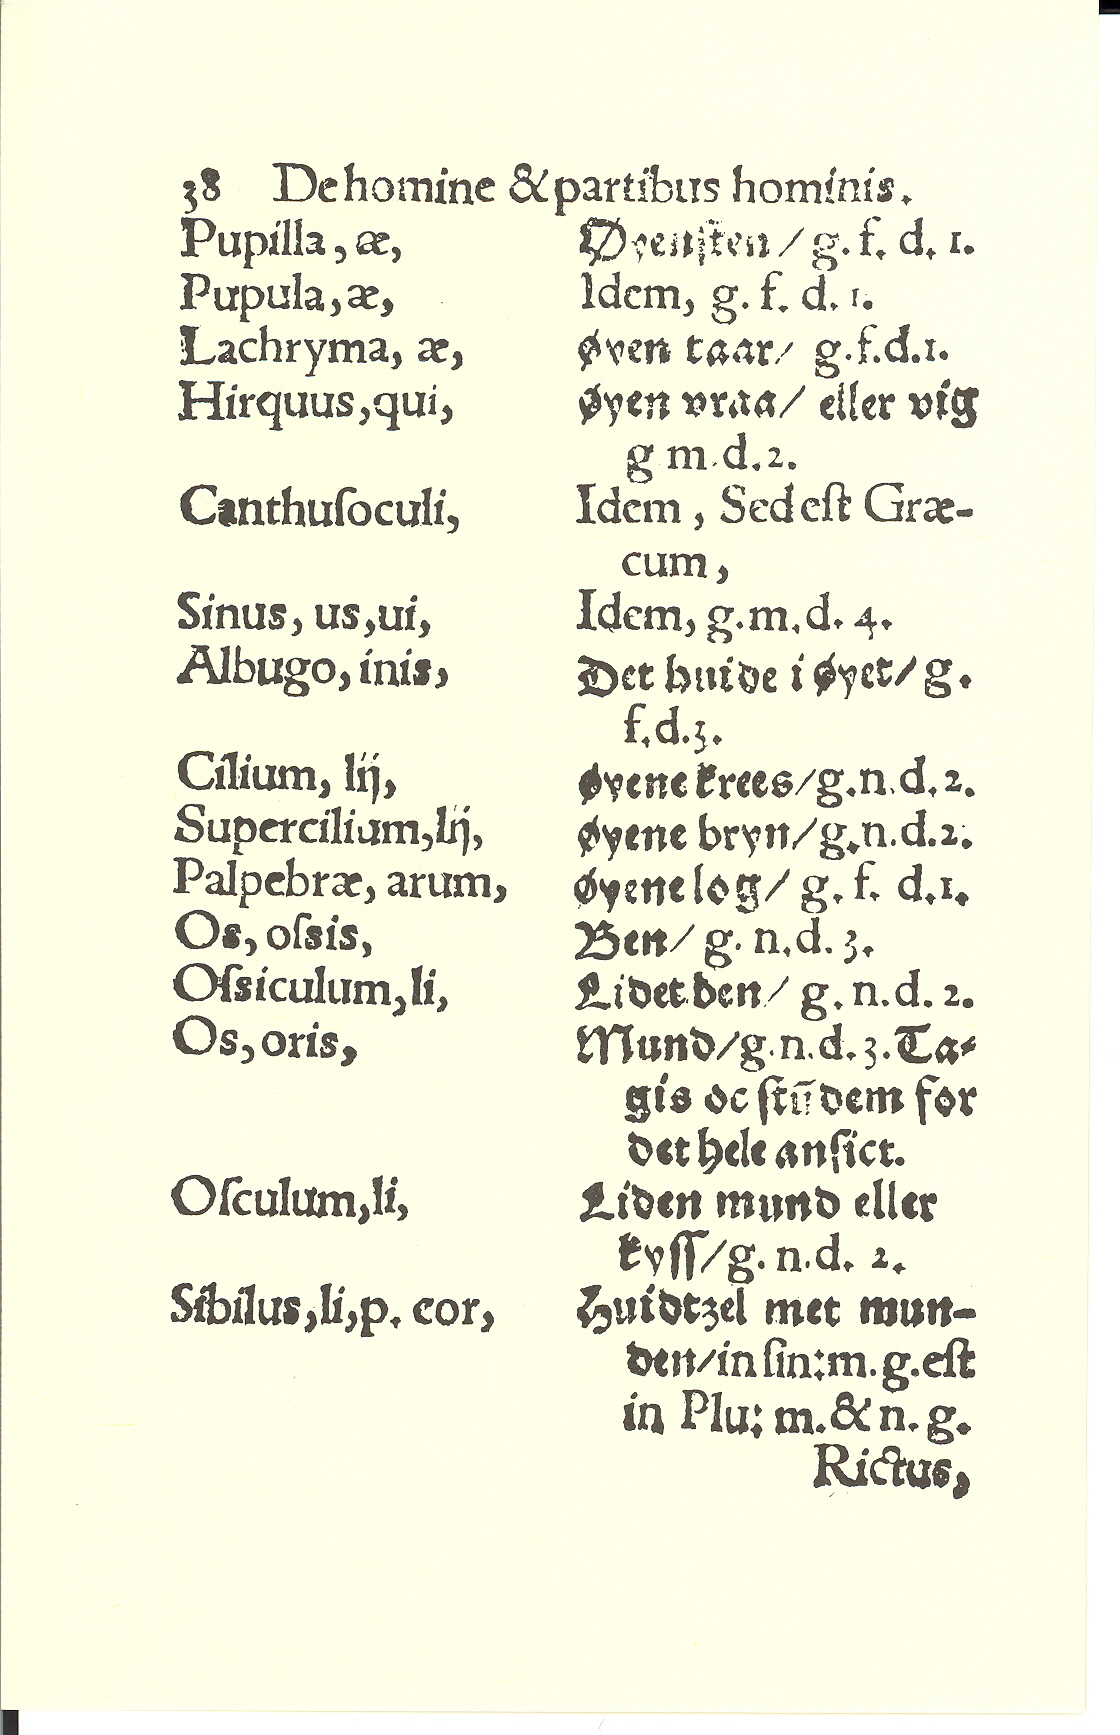 38 De homine & partibus hominis.
Pupilla, æ, Øyensten / g. f. d. 1.
Pupula, æ, Idem, g. f. d. 1.
Lachryma, æ, øyen taar/ g.f.d.1.
Hirquus, qui, øyen vraa/ eller vig
g m.d.2.
Canthuſoculi, Idem, Sed eſt Græ-
cum,
Sinus, us, ui, Idem, g.m.d. 4.
Albugo, inis, Det huide i øyet/ g.
f.d.3.
Cilium, lij, øyene krees/g.n.d.2.
Supercilium, lij, øyene bryn/g.n.d.2.
Palpebræ, arum, øyene log/ g. f. d.1.
Os, oſsis, Ben/ g. n.d. 3.
Oſsiculum, li, Lidet ben/ g. n.d. 2.
Os, oris, Mund/g.n.d.3. Ta-
gis oc ſtūdem for
det hele anſict.
Oſculum, li, Liden mund eller
kyſſ/g. n.d. 2.
Sibilus, li, p. cor, Huidtzel met mun-
den/in ſin:m.g.eſt
in Plu: m.& n. g.
Rictus,